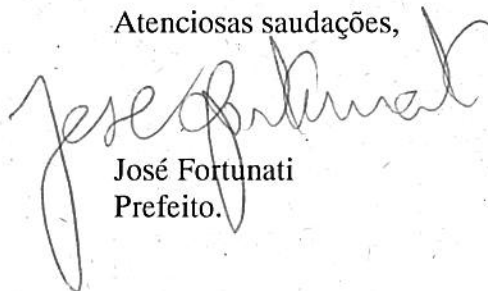 Atenciosas saudações,
José Fortunati
José Fortunati
Prefeito.